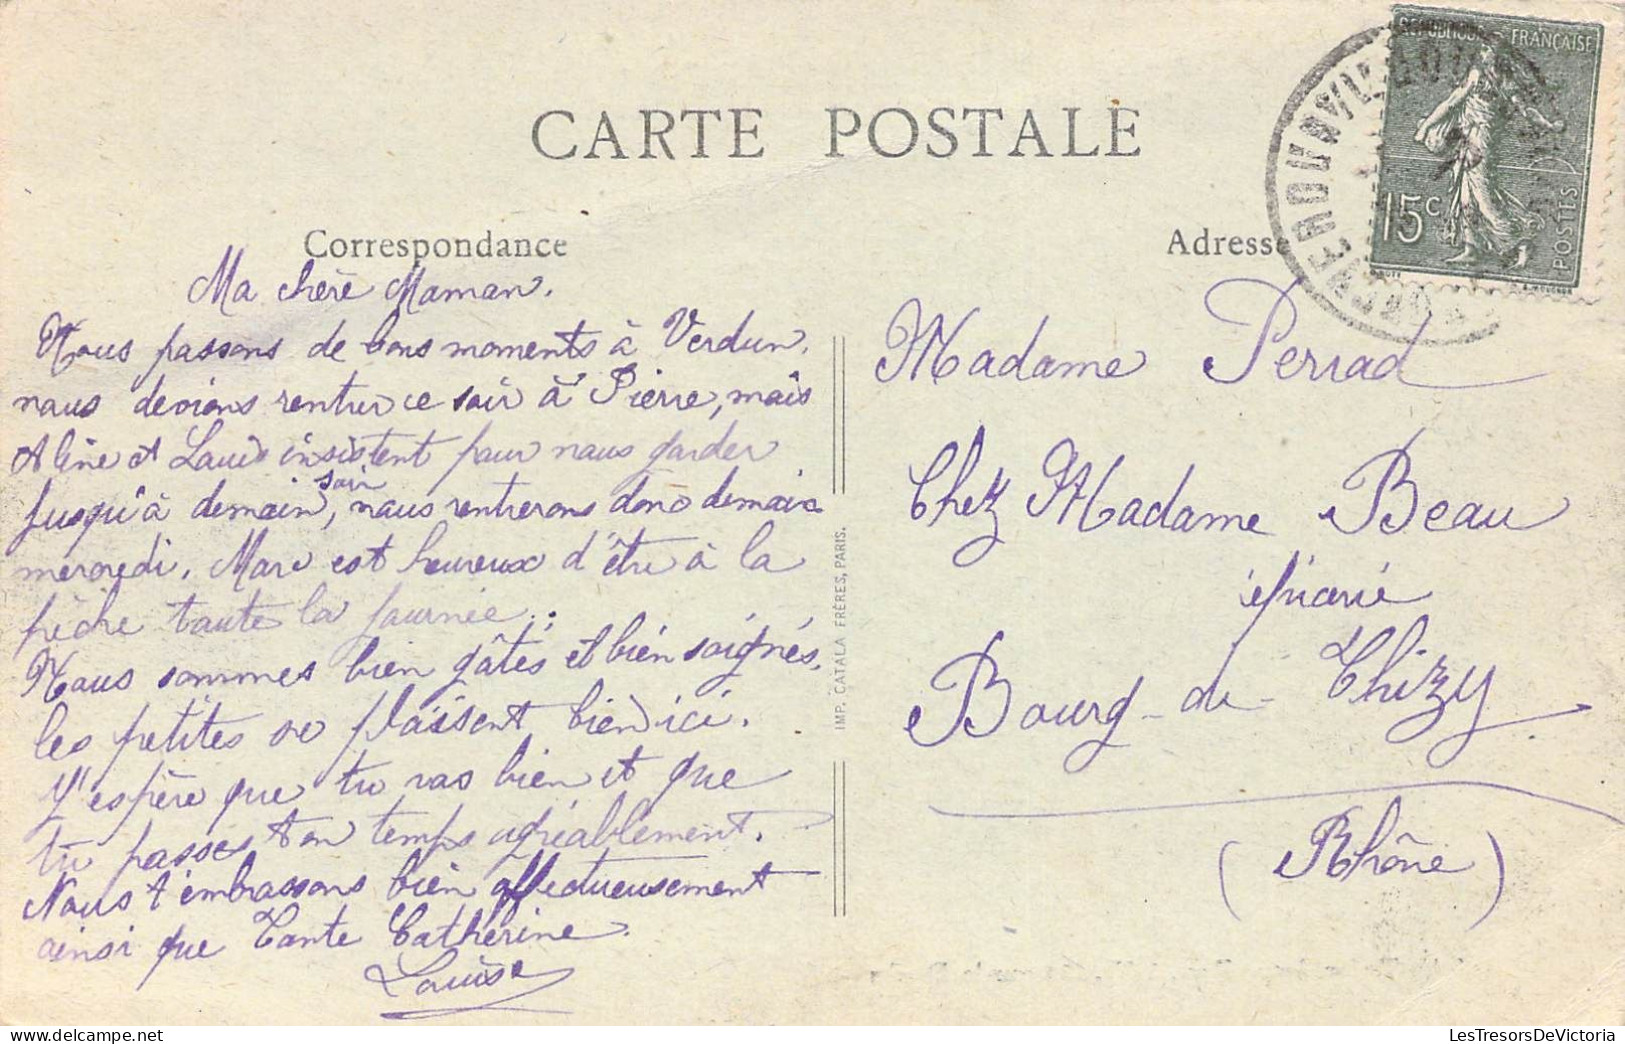 CARTE POSTALE
Correspondance
Ma chère Maman.
Nous passons de bons moments à Verdun.
nous devions rentrer ce soir à Pierre, mais
Aline et Louis insistent pour nous garder
jusqu'à demain soir, nous rentrerons donc demain
mercredi. Marc est heureux d'être à la
pêche toute la journée..
Nous sommes bien gâtés et bien soignés.
les petites se plaisent bien ici.
J'espère que tu vas bien et que
tu passes ton temps agréablement.
Nous t'embrassons bien affectueusement
ainsi que Tante Catherine.
Louise
IMP. CATALA FRÈRES, PARIS.
Adresse
REPUBLIQUE FRANÇAISE
15c
POSTES
Madame Perrad
Chez Madame Beau
épicerie
Bourg-de-Thizy
(Rhône)
LesTresorsDeVictoria.com